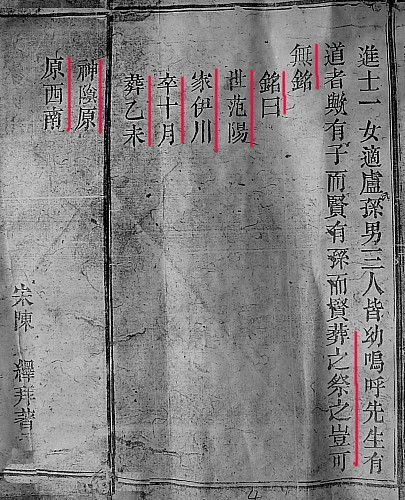 進士一女適盧孫男三人皆幼嗚呼先生有
道者歟有子而賢有孫而賢葬之祭之豈可
無銘
銘曰
世范陽
家伊川
卒十月
葬乙未
神陰原
原西南
宋陳 繹拜著